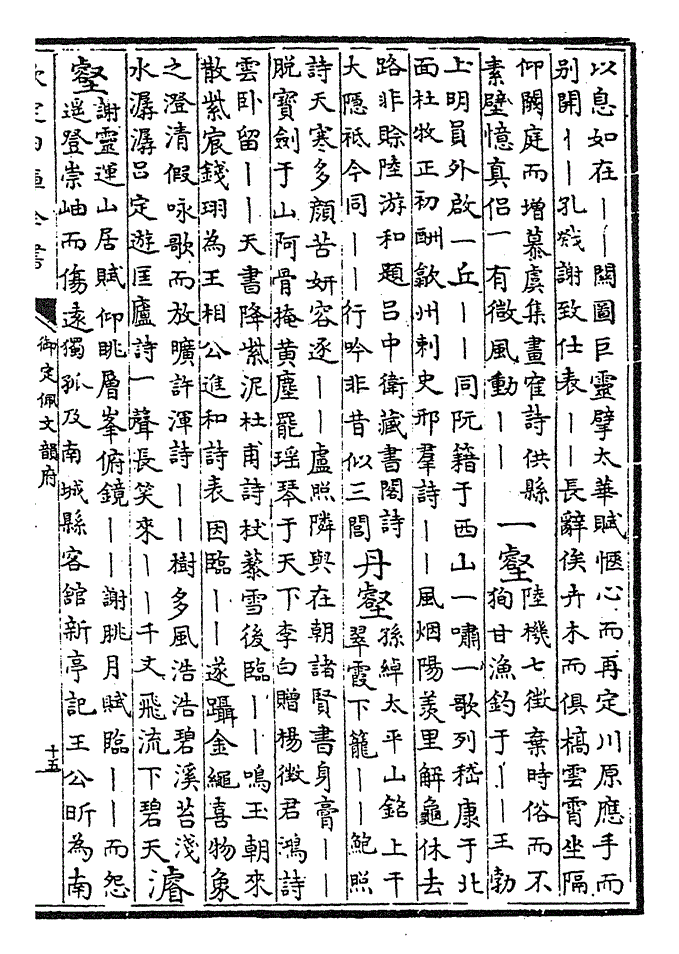 以息如在丨丨闗圖巨靈擘太華賦愜心而再定川原應手而
别開丨丨孔戣謝致仕表丨丨長辭俟卉木而俱槁雲霄坐隔
仰闕庭而增慕虞集畫寉詩供縣
素壁憶真侣一有微風動丨丨
一壑
陸機七徴棄時俗而不
狥甘漁釣于丨丨王勃
上明員外啟一丘丨丨同阮籍于西山一嘯一歌列嵇康于北
面杜牧正初酬歙州刺史邢羣詩丨丨風烟陽羡里解龜休去
路非賒陸游和題吕中衛藏書閣詩
大隱祗今同丨丨行吟非昔似三閭
丹壑
孫綽太平山銘上干
翠霞下籠丨丨鮑照
詩天寒多顔苦妍容逐丨丨盧照隣與在朝諸賢書身膏丨丨
脱寳劍于山阿骨掩黄塵罷瑶琴于天下李白贈楊徴君鴻詩
雲卧留丨丨天書降紫泥杜甫詩杖藜雪後臨丨丨鳴玉朝來
散紫宸錢珝為王相公進和詩表因臨丨丨遂躡金繩喜物象
之澄清假咏歌而放曠許渾詩丨丨樹多風浩浩碧溪苔淺
水潺潺吕定遊匡廬詩一聲長笑來丨丨千丈飛流下碧天
濬
壑
謝靈運山居賦仰眺層峯俯鏡丨丨謝朓月賦臨丨丨而怨
遥登崇岫而傷逺獨孤及南城縣客館新亭記王公昕為南
欽定四庫全書
御定佩文韻府
十五